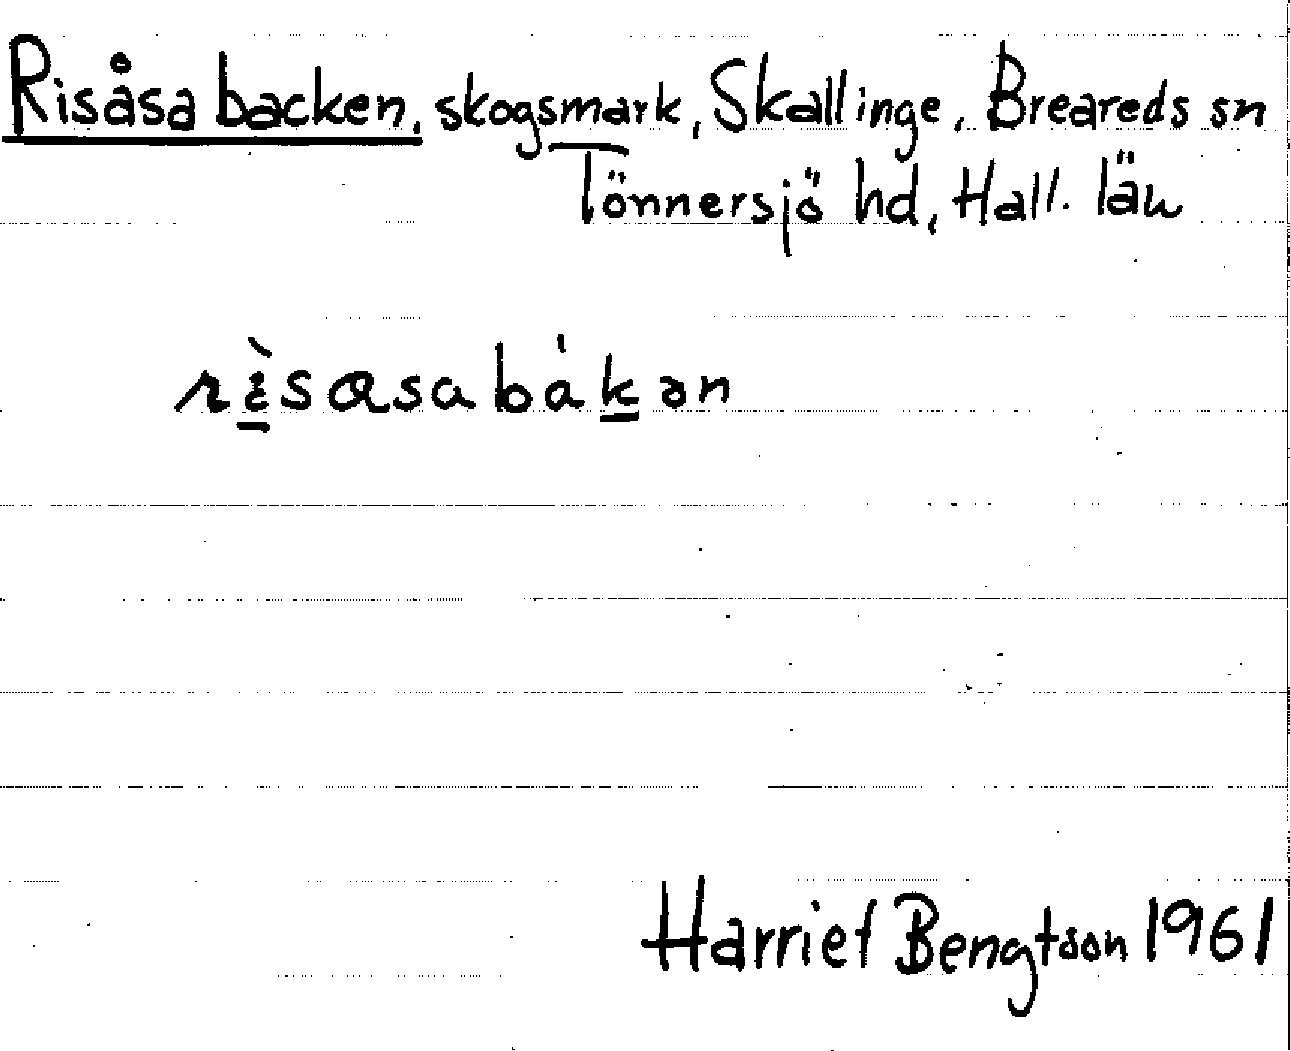 Risåsabacken, skogsmark, Skallinge, Breareds sn
Tönnersjö hd, Hall. län
rìsɑsabákən
Harriet Bengtson 1961